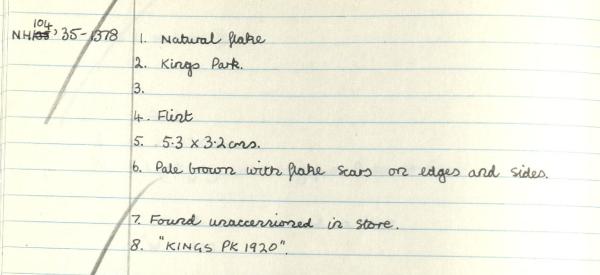 104
NH/35, 35-1378
1. Natural flake
2. Kings Park.
3.
4. Flint
5. 5.3 x 3.2 cms.
6. Pale brown with flake scars on edges and sides.
7. Found unaccessioned in store.
8. "KINGS PK 1920".